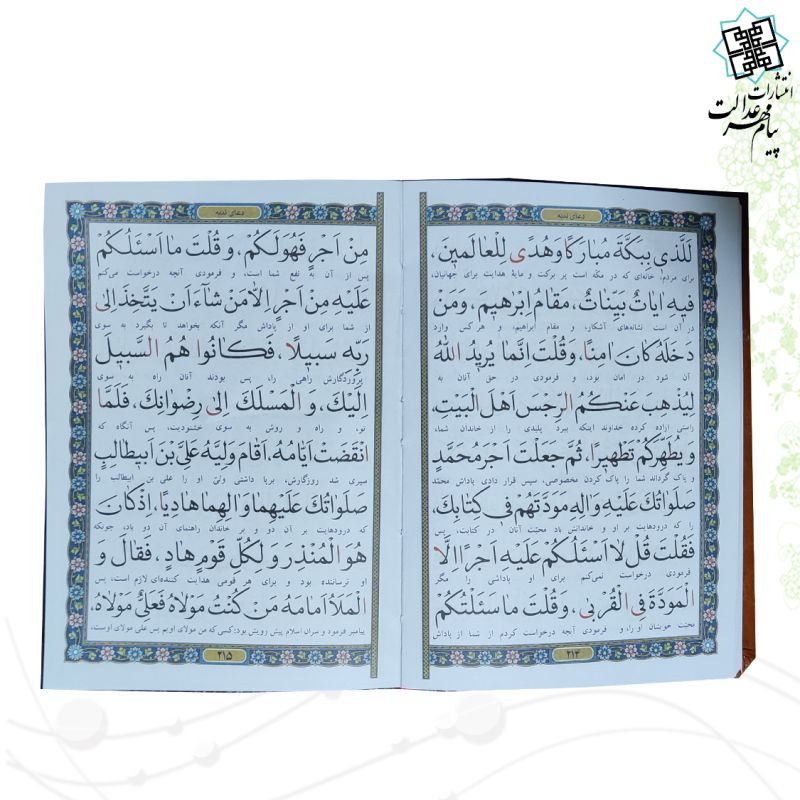 انتشارات
پیام مهر عدالت
دعای ندبه
لَلَّذى بِبَكَّةَ مُبارَكًا وَ هُدًى لِلْعالَمينَ،
برای مردم، خانه‌ای که در مکّه است پر برکت و مایهٔ هدایت برای جهانیان،
فيهِ اياتٌ بَيِّناتٌ، مَقامُ اِبْرهيمَ، وَمَنْ
در آن است نشانه‌های آشکار، و مقام ابراهیم، و هر کس وارد
دَخَلَهُ كانَ امِنًا، وَقُلْتَ اِنَّما يُريدُ اللهُ
آن شود در امان بود، و فرمودی در حق آنان به
لِيُذْهِبَ عَنْكُمُ الرِّجْسَ اَهْلَ الْبَيْتِ،
راستی اراده کرده خداوند اینکه ببرد پلیدی را از خاندان شما،
وَ يُطَهِّرَكُمْ تَطْهيرًا، ثُمَّ جَعَلْتَ اَجْرَ مُحَمَّدٍ
و پاک گرداند شما را پاک کردن مخصوصی، سپس قرار دادی پاداش محمّد
صَلَواتُكَ عَلَيْهِ وَالِهِ مَوَدَّتَهُمْ فى كِتابِكَ،
را که درودهایت بر او و خاندانش باد محبّت آنان در کتابت، پس
فَقُلْتَ قُلْ لا اَسْئَلُكُمْ عَلَيْهِ اَجْرًا اِلَّا
فرمودی درخواست نمی‌کنم برای او پاداشی را مگر
الْمَوَدَّةَ فِى الْقُرْبى، وَقُلْتَ ما سَئَلْتُكُمْ
محبّت خویشان او را، و فرمودی آنچه درخواست کردم از شما از پاداش
۲۱۴
دعای ندبه
مِنْ اَجْرٍ فَهُوَلَكُمْ، وَ قُلْتَ ما اَسْئَلُكُمْ
پس از آن به نفع شما است، و فرمودی آنچه درخواست می‌کنم
عَلَيْهِ مِنْ اَجْرٍ اِلّا مَنْ شآءَ اَنْ يَتَّخِذَ اِلى
از شما برای او از پاداش مگر آنکه بخواهد تا بگیرد به سوی
رَبِّه سَبيلًا، فَكانُوا هُمُ السَّبيلَ
پروردگارش راهی را، پس بودند آنان راه به سوی
اِلَيْكَ، وَ الْمَسْلَكَ اِلى رِضْوانِكَ، فَلَمَّا
تو، و راه و روش به سوی خشنودیت، پس آنگاه که
انْقَضَتْ اَيّامُهُ، اَقامَ وَلِيَّهُ عَلِىَّ بْنَ اَبيطالِبٍ
سپری شد روزگارش، برپا داشتی ولیّ او را علی بن ابیطالب را
صَلَواتُكَ عَلَيْهِما وَ الِهِما هادِيًا، اِذْ كانَ
که درودهایت بر آن دو و بر خاندان راهنمای آن دو باد، چونکه
هُوَ الْمُنْذِرَ وَ لِكُلِّ قَوْمٍ هادٍ، فَقالَ وَ
او ترساننده بود و برای هر قومی هدایت کننده‌ای لازم است، پس
الْمَلَأُ اَمامَهُ مَنْ كُنْتُ مَوْلاهُ فَعَلِىٌّ مَوْلاهُ،
پیامبر فرمود و سران اسلام پیش رویش بود: کسی که من مولای اویم پس علی مولای اوست،
۲۱۵